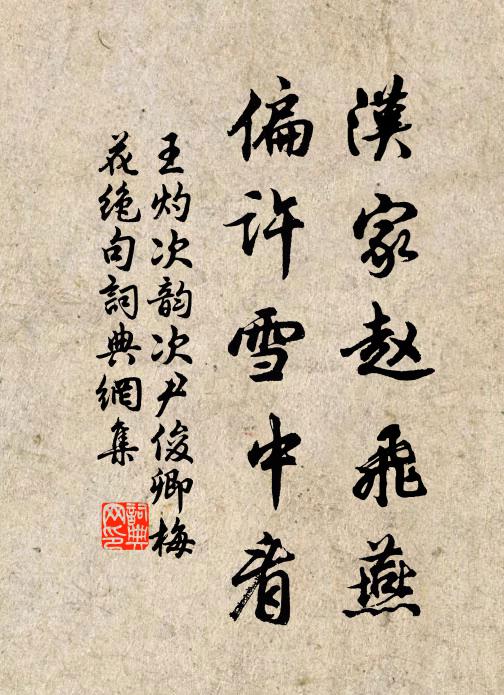 漢家赵飛燕
偏许雪中看
王灼次韵次尹俊卿梅
花绝句詞典網集
詞典
网印